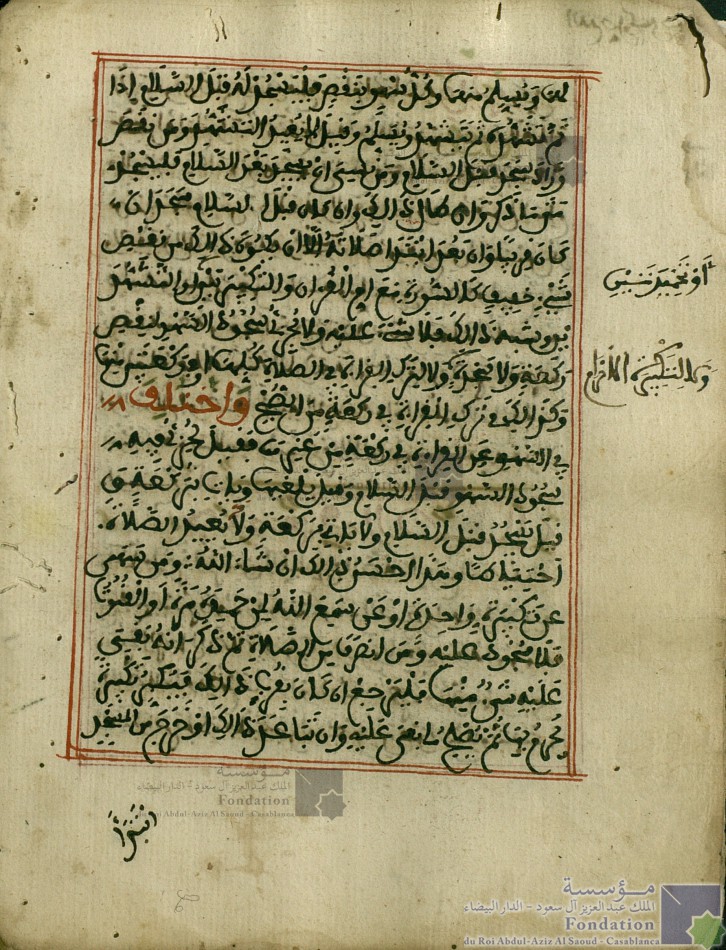 لهما ويسلم منهما وكل سهو بنقص فليسجد له قبل السلام إذا
تم تشهده ثم يتشهد ويسلم وقيل لا يعيد التشهد ومن نقص
وزاد سجد قبل السلام ومن نسي ان يسجد بعد السلام فليسجد
متى ما ذكره وان طال ذالك وان كان قبل السلام سجد ان
كان قريبا وان بعد ابتدا صلاته الا ان يكون ذالك من نقص
شيء خفيف كالسورة مع ام القرءان والتكبيرتين او التشهد
ين وشبه ذالك فلا شيء عليه ولا يجزئ سجود السهو لنقص
ركعة ولا سجدة ولا لترك القراءة في الصلاة كلها او ركعتين منها
وكذالك في ترك القراءة في ركعة من الصبح واختلف
في السهو عن القراءة في ركعة من غيرها فقيل يجزئ فيه
سجود السهو قبل السلام وقيل يلغيها وياتي بركعة و
قيل يسجد قبل السلام ولا ياتي بركعة ويعيد الصلاة
احتياطا وهذا احسن ذالك ان شاء الله ومن سهى
عن تكبيرة واحدة او عن سمع الله لمن حمده مرة او القنوت
فلا سجود عليه ومن انصرف من الصلاة ثم ذكر انه بقي
عليه شيء منها فليرجع ان كان بقرب ذالك فيكبر تكبيرة
يحرم بها ثم يصلي ما بقي عليه وان تباعد ذالك او خرج من المسجد
ابتدأ
مؤسسة
الملك عبد العزيز آل سعود - الدار البيضاء
Fondation
du Roi Abdul-Aziz Al Saoud - Casablanca
مؤسسة
الملك عبد العزيز آل سعود - الدار البيضاء
Fondation
du Roi Abdul-Aziz Al Saoud - Casablanca